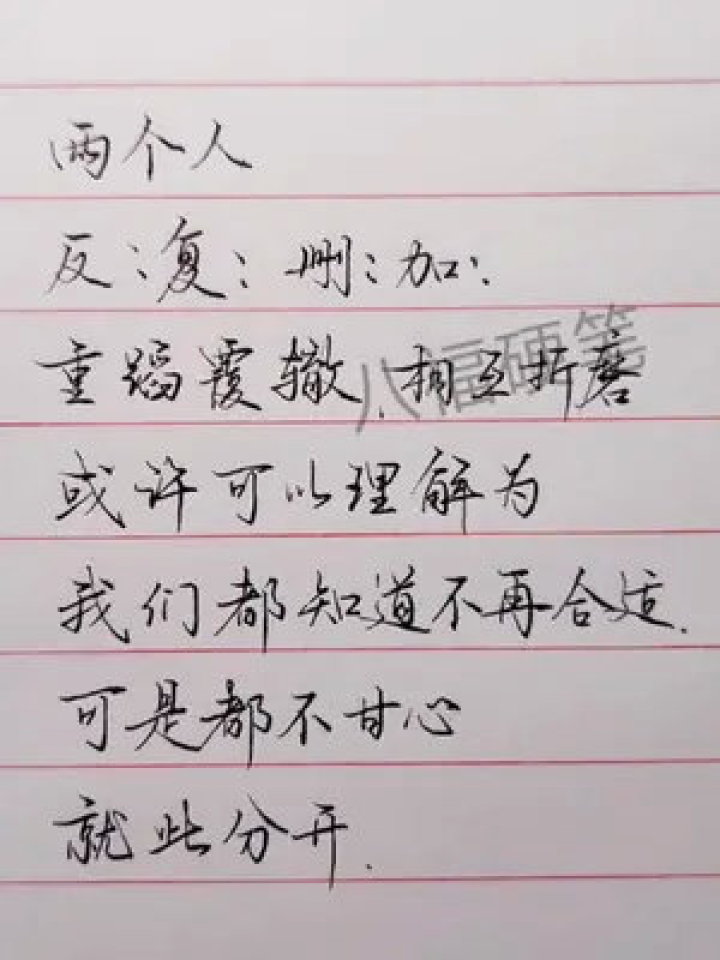 两个人
反复删加.
重蹈覆辙,相互折磨
或许可以理解为
我们都知道不再合适.
可是都不甘心
就此分开.
八福硬笔